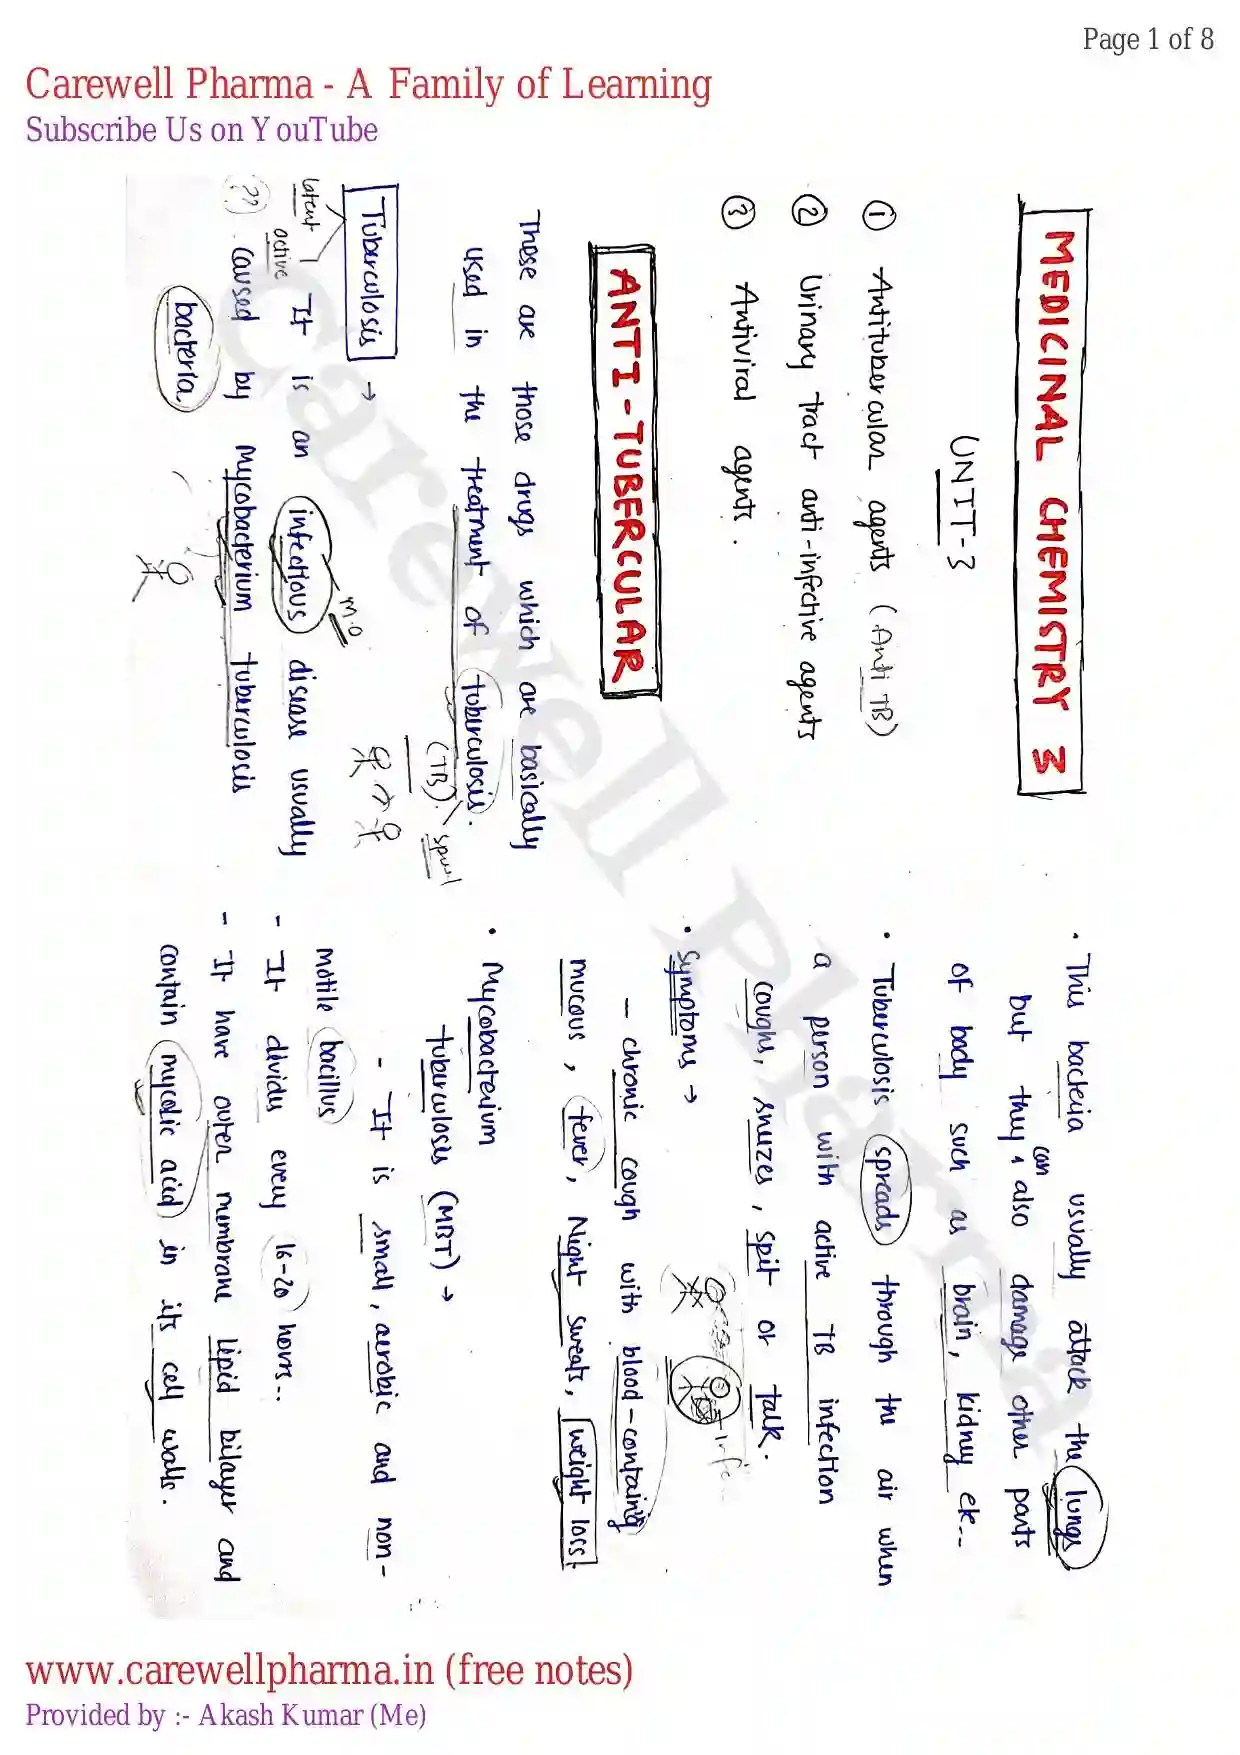 Page 1 of 8
Carewell Pharma - A Family of Learning
Subscribe Us on YouTube
MEDICINAL CHEMISTRY 3
UNIT-3
① Antitubercular agents (Anti TB)
② Urinary tract anti-infective agents
③ Antiviral agents.
ANTI-TUBERCULAR
These are those drugs which are basically
used in the treatment of tuberculosis.
(TB)
Tuberculosis →
latent
active
It is an infectious disease usually
m.o
??
caused by Mycobacterium tuberculosis
bacteria
• This bacteria usually attack the lungs
but they can also damage other parts
of body such as brain, kidney etc...
• Tuberculosis spreads through the air when
a person with active TB infection
coughs, snuzes, spit or talk.
• Symptoms →
- chronic cough with blood-containing
mucous, fever, Night sweats, weight loss.
• Mycobacterium
tuberculosis (MBT) →
- It is small, aerobic and non-
motile bacillus
- It divides every 16-20 hours...
- It have outer membrane lipid bilayer and
contain mycolic acid in its cell walls.
Carewell Pharma
www.carewellpharma.in (free notes)
Provided by :- Akash Kumar (Me)